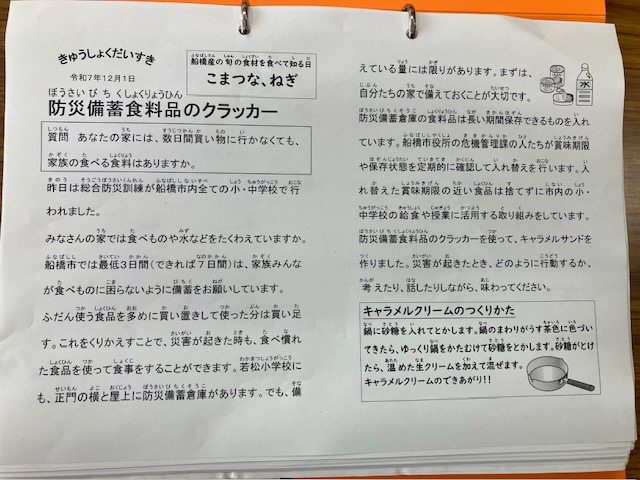 きゅうしょくだいすき
令和7年12月1日
船橋産の旬の食材を食べて知る日
こまつな、ねぎ
防災備蓄食料品のクラッカー
質問 あなたの家には、数日間買い物に行かなくても、
家族の食べる食料はありますか。
昨日は総合防災訓練が船橋市内全ての小・中学校で行
われました。
みなさんの家では食べものや水などをたくわえていますか。
船橋市では最低3日間(できれば7日間)は、家族みんな
が食べものに困らないように備蓄をお願いしています。
ふだん使う食品を多めに買い置きして使った分は買い足
す。これをくりかえすことで、災害が起きた時も、食べ慣れ
た食品を使って食事をすることができます。若松小学校に
も、正門の横と屋上に防災備蓄倉庫があります。でも、備
えている量には限りがあります。まずは、
自分たちの家で備えておくことが大切です。
水
防災備蓄倉庫の食料品は長い期間保存できるものを入れ
ています。船橋市役所の危機管理課の人たちが賞味期限
や保存状態を定期的に確認して入れ替えを行います。入
れ替えた賞味期限の近い食品は捨てずに市内の小・
中学校の給食や授業に活用する取り組みをしています。
防災備蓄食料品のクラッカーを使って、キャラメルサンドを
作りました。災害が起きたとき、どのように行動するか、
考えたり、話したりしながら、味わってください。
キャラメルクリームのつくりかた
鍋に砂糖を入れてとかします。鍋のまわりがうす茶色に色づい
てきたら、ゆっくり鍋をかたむけて砂糖をとかします。砂糖がとけ
たら、温めた生クリームを加えて混ぜます。
キャラメルクリームのできあがり!!